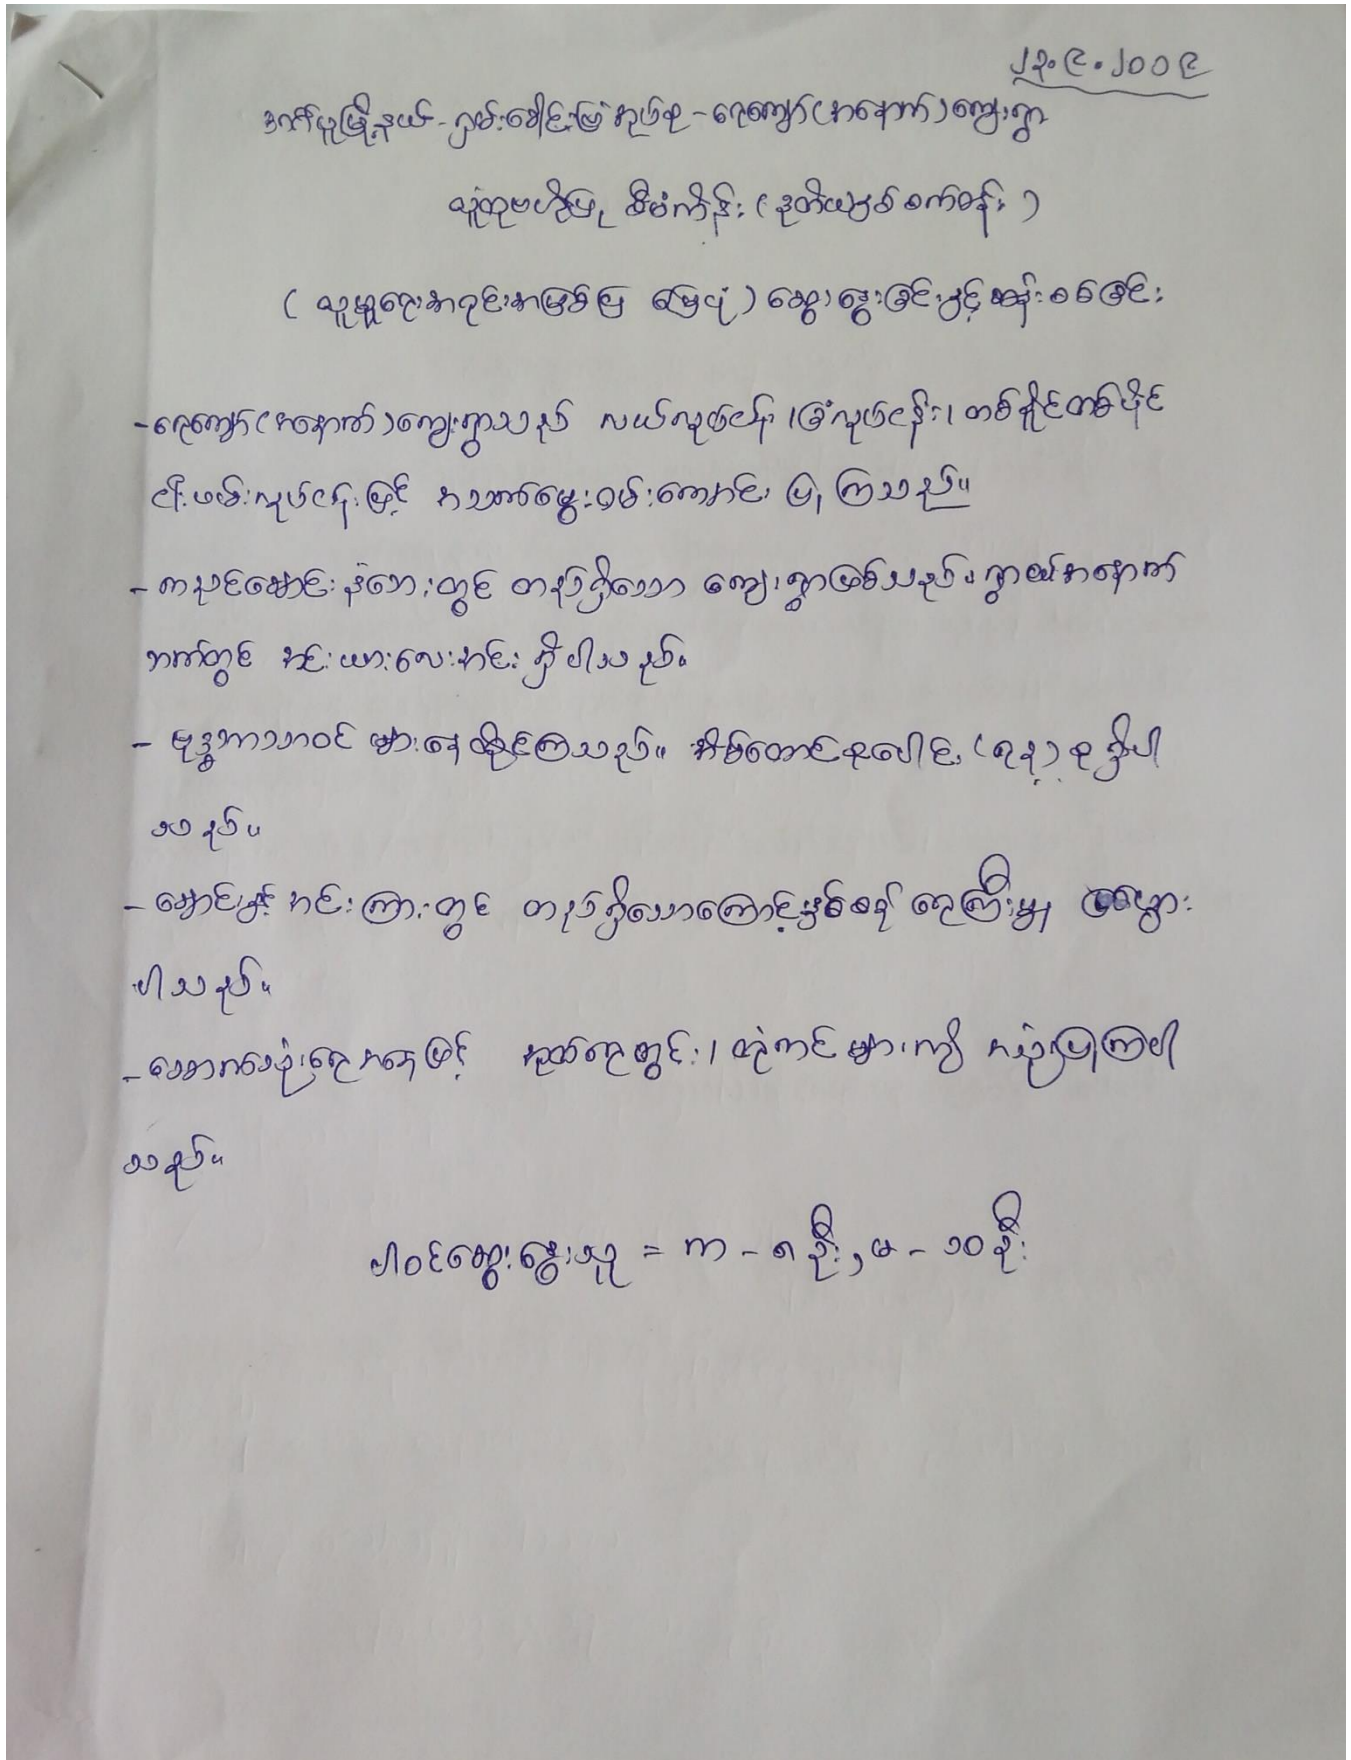 ၂၃.၉.၂၀၀၉
ဒလမြို့နယ်-ကျမ်းခေါင်းမြဲအုပ်စု-ရေကျော်(အနောက်)ကျေးရွာ
လူထုဗဟိုပြု စီမံကိန်း (ဒုတိယနှစ်စက်ဝန်း)
(လူမှုရေးအရင်းအမြစ်ပြ မြေပုံ) ဆွေးနွေးခြင်းနှင့်ဆန်းစစ်ခြင်း
-ရေကျော်(အနောက်)ကျေးရွာသည် လယ်လုပ်ငန်း၊ခြံလုပ်ငန်း၊တစ်နိုင်တစ်ပိုင်
ငါးဖမ်းလုပ်ငန်းဖြင့် အသက်မွေးဝမ်းကျောင်း ပြုကြသည်။
-ကညင်ချောင်းနံဘေးတွင် တည်ရှိသော ကျေးရွာဖြစ်သည်။ရွာ၏အနောက်
ဘက်တွင် အင်းယားလေးအင်း ရှိပါသည်။
-ဗုဒ္ဓဘာသာဝင် များနေထိုင်ကြသည်။ အိမ်ထောင်စုပေါင်း (၇၃)စုရှိပါ
သည်။
-ချောင်းနှင့်အင်းကြားတွင် တည်ရှိသောကြောင့်နှစ်စဉ် ရေကြီးမှု များ
ပါသည်။
-သောက်သုံးရေအနေဖြင့် အုတ်ရေတွင်း၊တုံကင်များကို အသုံးပြုကြပါ
သည်။
ပါဝင်ဆွေးနွေးသူ = ကျ - ၈ဦး, မ - ၁၀ဦး